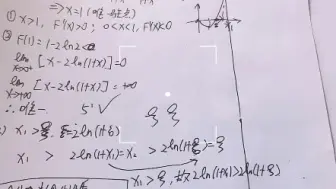 ⇒ x=1 (唯一驻点)
① x>1, F'(x)>0; 0<x<1, F'(x)<0
② F(1)=1-2ln2<0
lim x→0+ [x-2ln(1+x)]=0
lim x→+∞ [x-2ln(1+x)]=+∞
∴ 唯一 5'✓ ξ ξ
) x₁>ξ, ξ=2ln(1+ξ)
x₁ > 2ln(1+x₁)=x₂ > 2ln(1+ξ)=ξ
x₁>ξ, 2ln(1+x₁)>2ln(1+ξ)